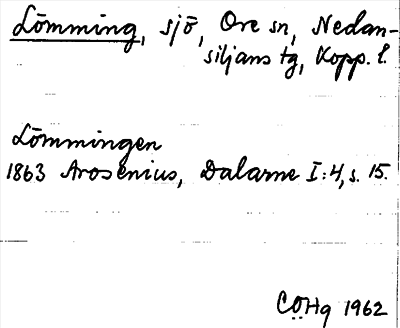 Lömming, sjö, Ore sn, Nedan-
siljans tg, Kopp. l.
Lömmingen
1863 Arosenius, Dalarne I:4, s. 15.
CÖHg 1962